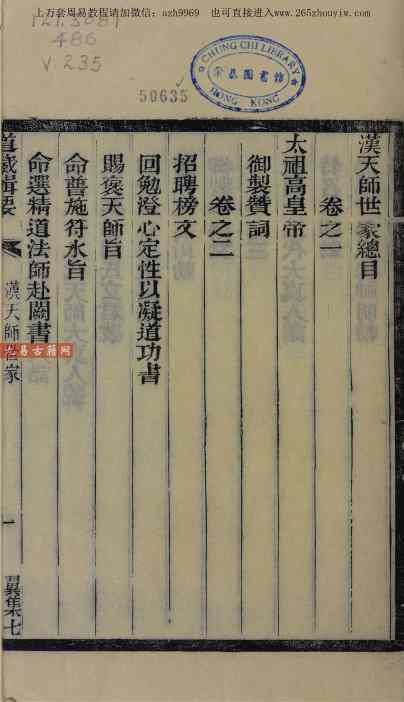 上万套周易教程请加微信：azh9969 也可直接进入www.265zhouyiw.com
486
V.235
50635
CHUNG CHI LIBRARY
崇基圖書館
HONG KONG
漢天師世家總目
卷之一
太祖高皇帝
御製贊詞
卷之二
招聘榜文
回勉澄心定性以凝道功書
賜褒天師旨
命普施符水旨
命選精道法師赴闕書
道藏輯要
漢天師世家
一
翼集七
易古籍网